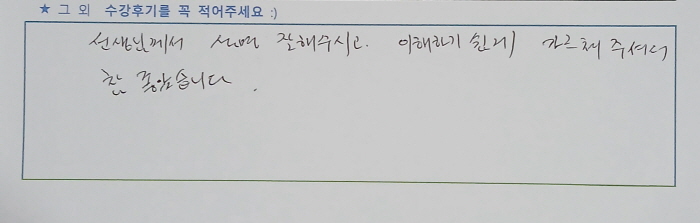 ★ 그 외 수강후기를 꼭 적어주세요 :)
선생님께서 설명 잘해주시고. 이해하기 쉽게 가르쳐 주셔서
참 좋았습니다.